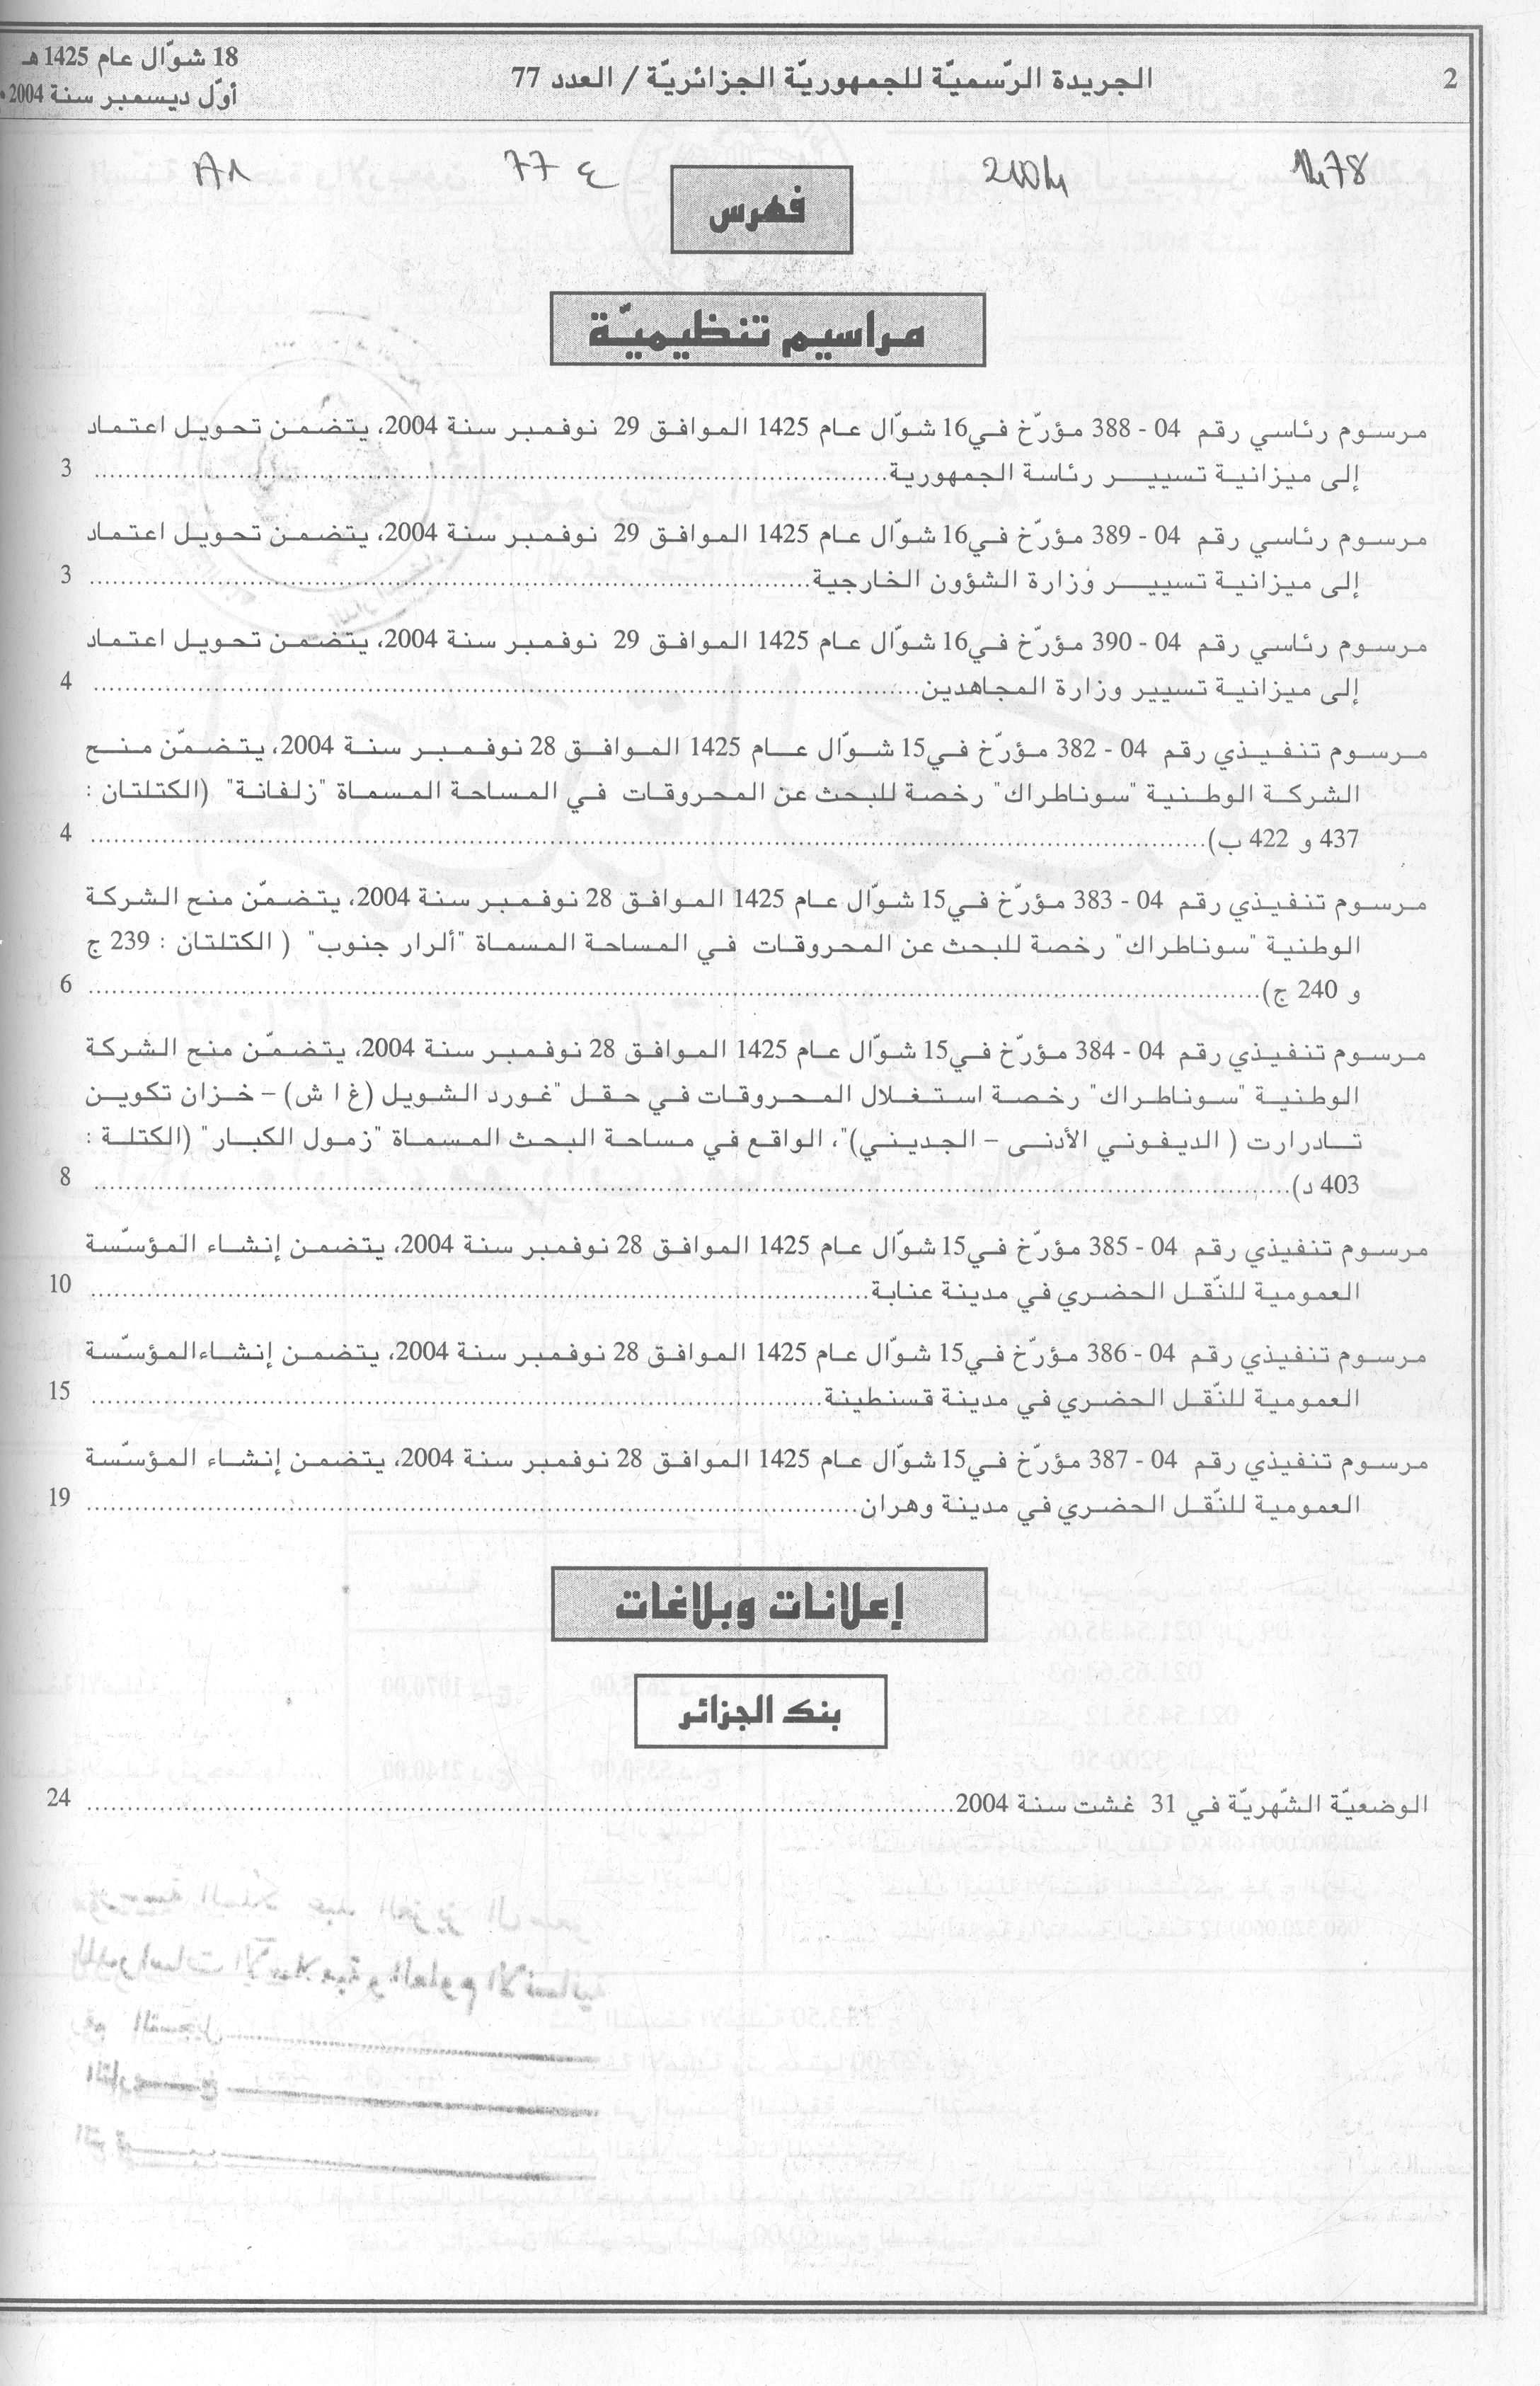 2
الجريدة الرّسميّة للجمهوريّة الجزائريّة / العدد 77
18 شوّال عام 1425 هـ
أوّل ديسمبر سنة 2004 م
1478
2004
77 ع
A1
فهرس
مراسيم تنظيميّة
مرسوم رئاسي رقم 04 - 388 مؤرّخ في 16 شوّال عام 1425 الموافق 29 نوفمبر سنة 2004، يتضمن تحويل اعتماد
إلى ميزانية تسيير رئاسة الجمهورية........ 3
مرسوم رئاسي رقم 04 - 389 مؤرّخ في 16 شوّال عام 1425 الموافق 29 نوفمبر سنة 2004، يتضمن تحويل اعتماد
إلى ميزانية تسيير وزارة الشؤون الخارجية........ 3
مرسوم رئاسي رقم 04 - 390 مؤرّخ في 16 شوّال عام 1425 الموافق 29 نوفمبر سنة 2004، يتضمن تحويل اعتماد
إلى ميزانية تسيير وزارة المجاهدين........ 4
مرسوم تنفيذي رقم 04 - 382 مؤرّخ في 15 شوّال عام 1425 الموافق 28 نوفمبر سنة 2004، يتضمّن منح
الشركة الوطنية "سوناطراك" رخصة للبحث عن المحروقات في المساحة المسماة "زلفانة" (الكتلتان :
437 و 422 ب)........ 4
مرسوم تنفيذي رقم 04 - 383 مؤرّخ في 15 شوّال عام 1425 الموافق 28 نوفمبر سنة 2004، يتضمّن منح الشركة
الوطنية "سوناطراك" رخصة للبحث عن المحروقات في المساحة المسماة "ألرار جنوب" ( الكتلتان : 239 ج
و 240 ج)........ 6
مرسوم تنفيذي رقم 04 - 384 مؤرّخ في 15 شوّال عام 1425 الموافق 28 نوفمبر سنة 2004، يتضمّن منح الشركة
الوطنية "سوناطراك" رخصة استغلال المحروقات في حقل "غورد الشويل (غ ا ش) – خزان تكوين
تادرارت ( الديفوني الأدنى – الجديني)"، الواقع في مساحة البحث المسماة "زمول الكبار" (الكتلة :
403 د)........ 8
مرسوم تنفيذي رقم 04 - 385 مؤرّخ في 15 شوّال عام 1425 الموافق 28 نوفمبر سنة 2004، يتضمن إنشاء المؤسّسة
العمومية للنّقل الحضري في مدينة عنابة........ 10
مرسوم تنفيذي رقم 04 - 386 مؤرّخ في 15 شوّال عام 1425 الموافق 28 نوفمبر سنة 2004، يتضمن إنشاء المؤسّسة
العمومية للنّقل الحضري في مدينة قسنطينة........ 15
مرسوم تنفيذي رقم 04 - 387 مؤرّخ في 15 شوّال عام 1425 الموافق 28 نوفمبر سنة 2004، يتضمن إنشاء المؤسّسة
العمومية للنّقل الحضري في مدينة وهران........ 19
إعلانات وبلاغات
بنك الجزائر
الوضعيّة الشّهريّة في 31 غشت سنة 2004........ 24